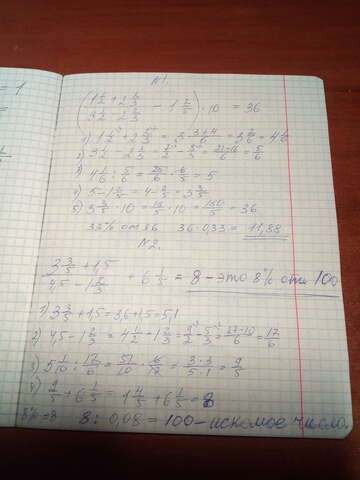 = 1
=
N1.
(1 1/2 + 2 2/3 / 3 1/2 - 2 2/3 - 1 2/5) · 10 = 36
1) 1 1/2 + 2 2/3 = 3 3+4/6 = 3 7/6 = 4 1/6
2) 3 1/2 - 2 2/3 = 7/2 - 8/3 = 21-16/6 = 5/6
3) 4 1/6 : 5/6 = 25/6 · 6/5 = 5
4) 5 - 1 2/5 = 4 - 2/5 = 3 3/5
5) 3 3/5 · 10 = 18/5 · 10 = 180/5 = 36
33% от 36 36 · 0,33 = 11,88
N2.
3 3/5 + 1,5 / 4,5 - 1 2/3 + 6 1/5 = 8 - это 8% от 100
1) 3 3/5 + 1,5 = 3,6 + 1,5 = 5,1
2) 4,5 - 1 2/3 = 4 1/2 - 1 2/3 = 9/2 - 5/3 = 27-10/6 = 17/6
3) 5 1/10 : 17/6 = 51/10 · 6/17 = 3·3/5·1 = 9/5
4) 9/5 + 6 1/5 = 1 4/5 + 6 1/5 = 8
8% = 8 8 : 0,08 = 100 - искомое число.